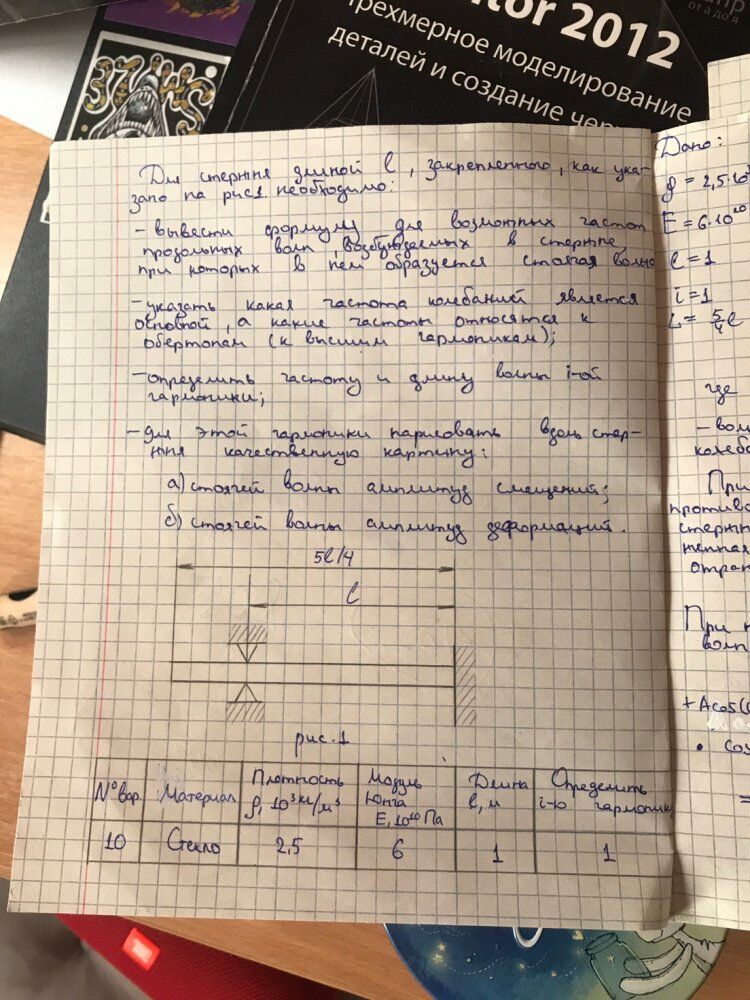 tor 2012
трехмерное моделирование
деталей и создание чер
от а до я
Для стержня длиной l, закрепленного, как ука-
зано на рис1. необходимо:
- вывести формулу для возможных частот
продольных волн, возбуждаемых в стержне,
при которых в нем образуется стоячая волна
- указать какая частота колебаний является
основной, а какие частоты относятся к
обертонам (к высшим гармоникам);
- определить частоту и длину волны i-ой
гармоники;
- для этой гармоники нарисовать вдоль стер-
жня качественную картину:
а) стоячей волны амплитуд смещений;
б) стоячей волны амплитуд деформаций.
5l/4
l
рис.1
№ вар. Материал Плотность ρ, 10³ кг/м³ Модуль Юнга E, 10¹⁰ Па Длина l, м Определить i-ю гармонику
10 Стекло 2,5 6 1 1
Дано:
ρ = 2,5·10
E = 6·10¹⁰
l = 1
i = 1
L = 5/4 l
где
- вол
колеба
При
противо
стержн
женная
отра
При
волн
+ Acos(